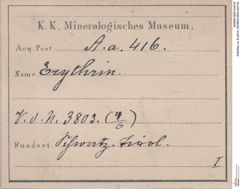 K. K. Mineralogisches Museum.
Acq. Post A. a. 416.
Name Erythrin.
V. d. N. 3803. (4/6)
Fundort. Schwatz, Tirol.
I